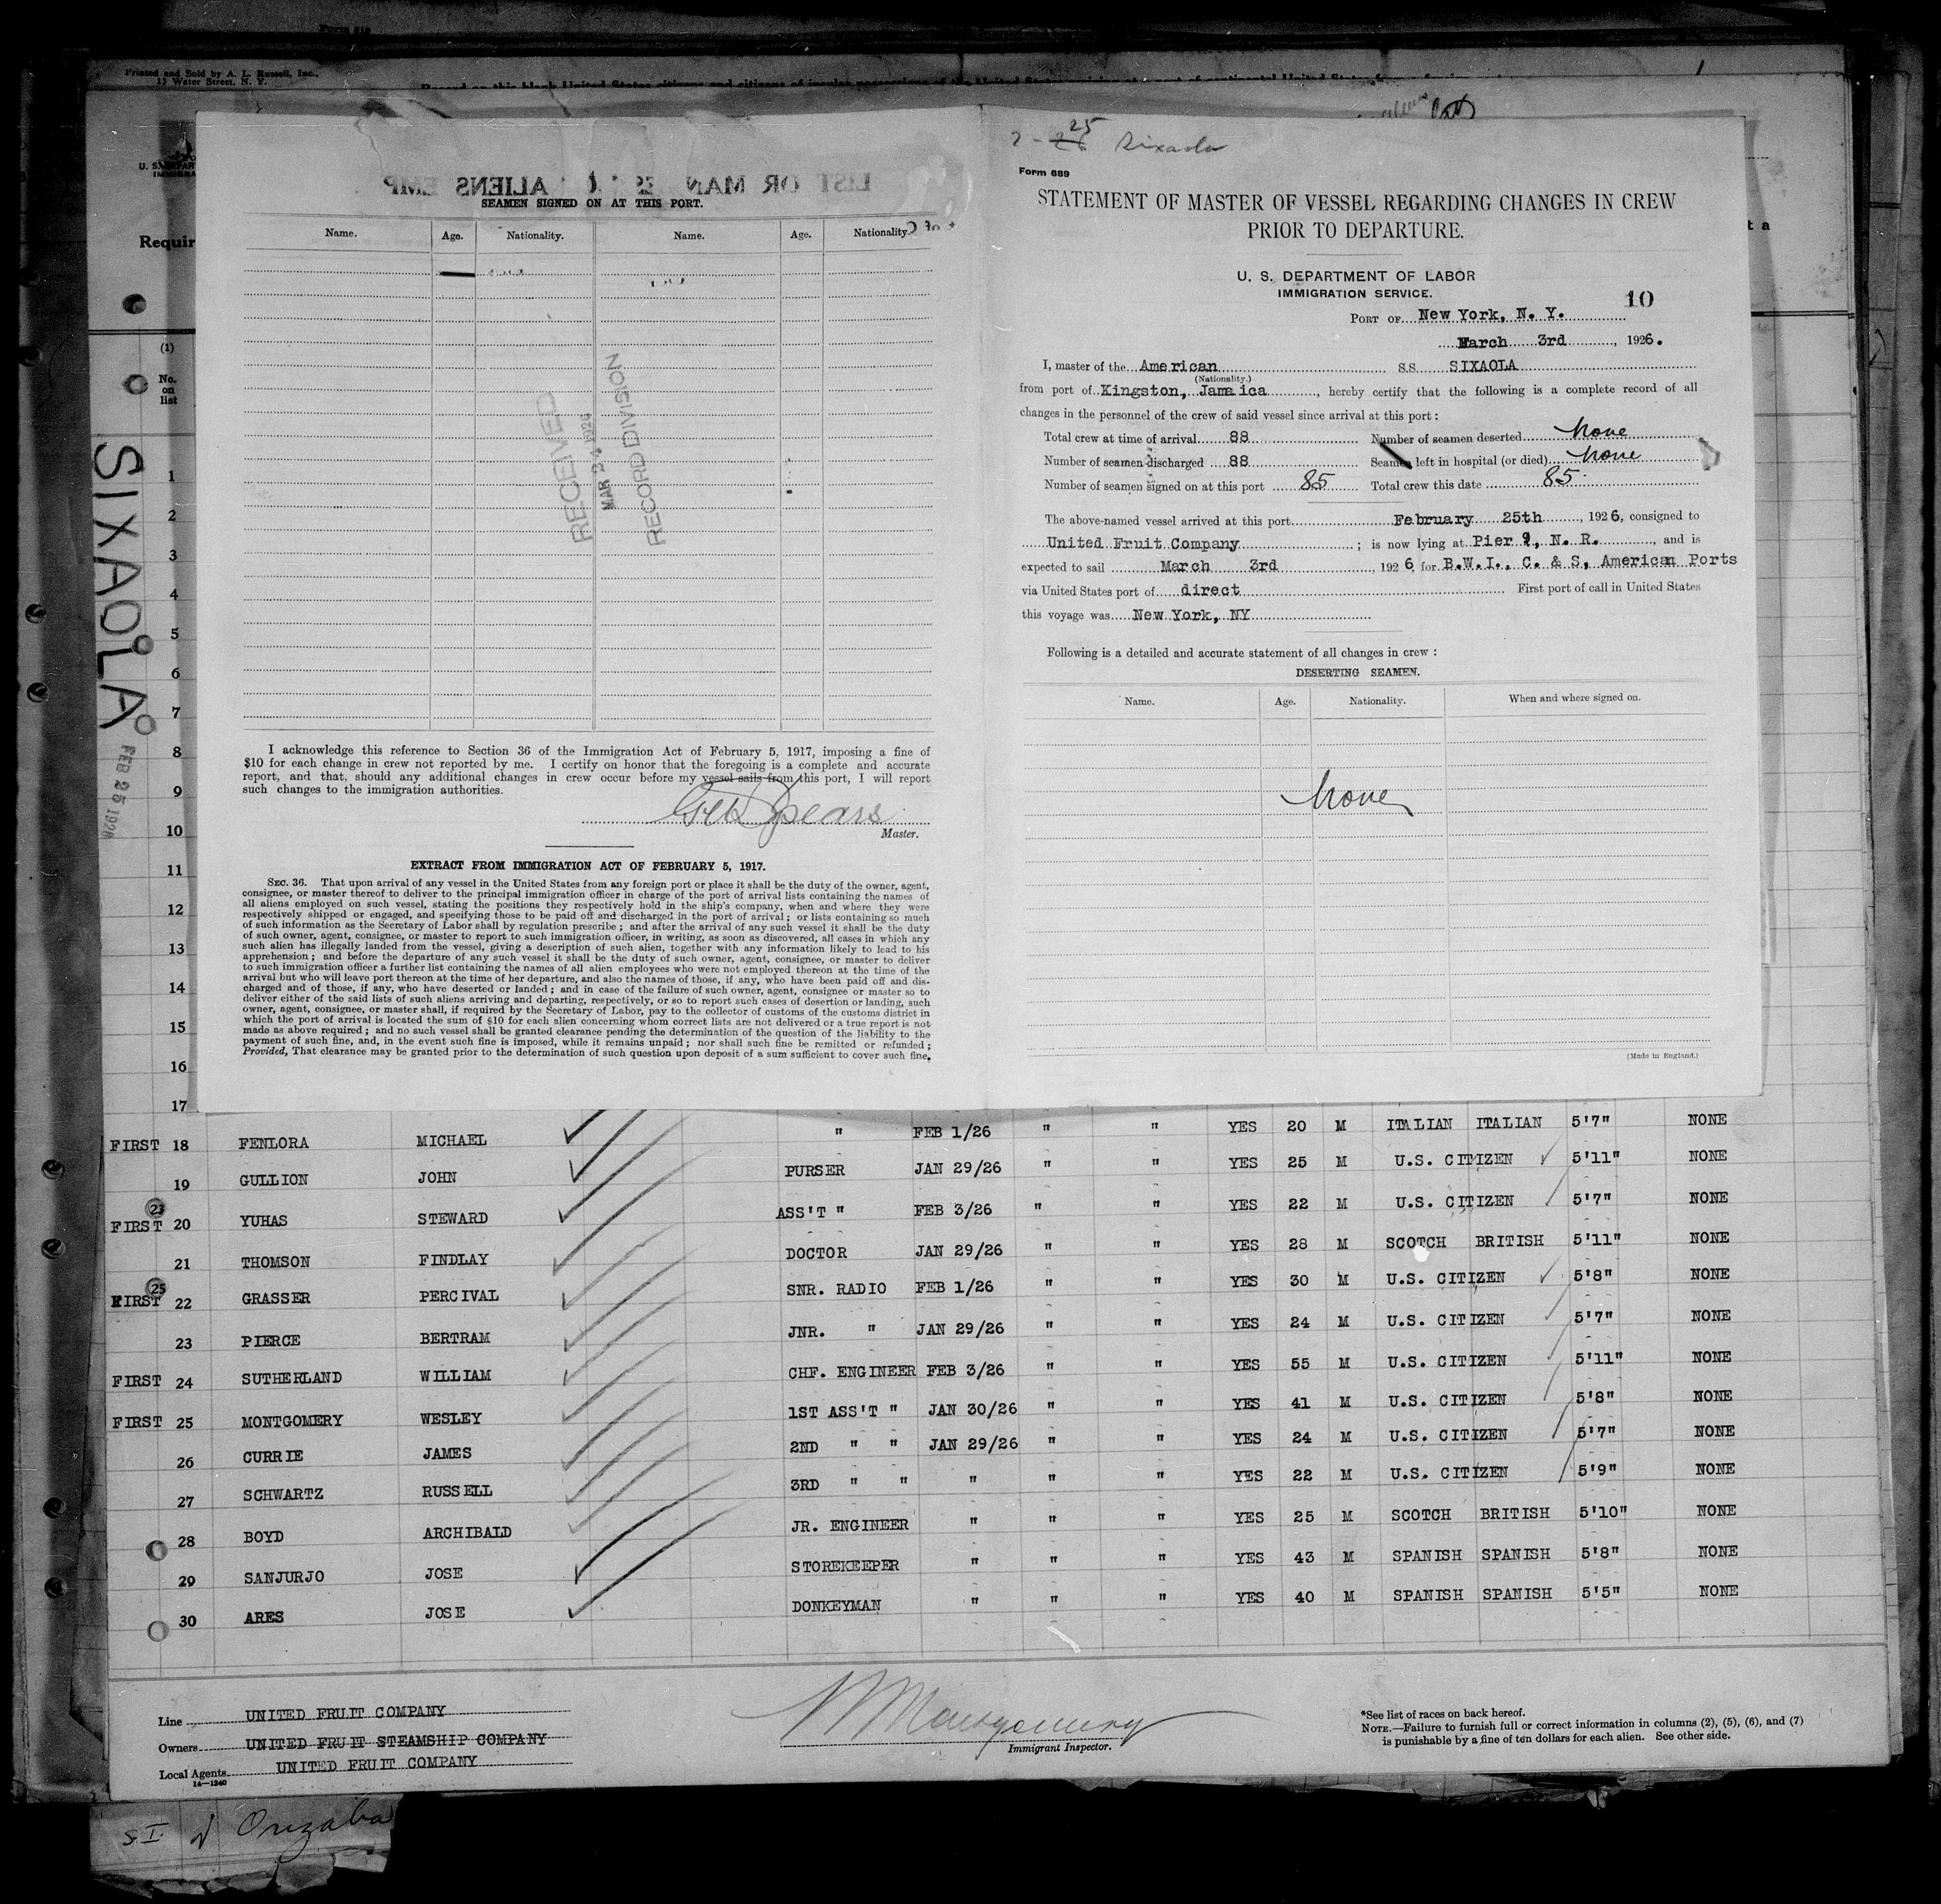 Form 689
Printed and Sold by A. L. Russell, Inc.,
13 Water Street, N. Y.
Requir
(1)
No.
on
list
SIXAOLA
FEB 25 1926
SEAMEN SIGNED ON AT THIS PORT.
Name. Age. Nationality. Name. Age. Nationality.
RECEIVED
MAR 24 1926
RECORD DIVISION
I acknowledge this reference to Section 36 of the Immigration Act of February 5, 1917, imposing a fine of
$10 for each change in crew not reported by me. I certify on honor that the foregoing is a complete and accurate
report, and that, should any additional changes in crew occur before my vessel sails from this port, I will report
such changes to the immigration authorities.
Spears
Master.
EXTRACT FROM IMMIGRATION ACT OF FEBRUARY 5, 1917.
SEC. 36. That upon arrival of any vessel in the United States from any foreign port or place it shall be the duty of the owner, agent,
consignee, or master thereof to deliver to the principal immigration officer in charge of the port of arrival lists containing the names of
all aliens employed on such vessel, stating the positions they respectively hold in the ship's company, when and where they were
respectively shipped or engaged, and specifying those to be paid off and discharged in the port of arrival; or lists containing so much
of such information as the Secretary of Labor shall by regulation prescribe; and after the arrival of any such vessel it shall be the duty
of such owner, agent, consignee, or master to report to such immigration officer, in writing, as soon as discovered, all cases in which any
such alien has illegally landed from the vessel, giving a description of such alien, together with any information likely to lead to his
apprehension; and before the departure of any such vessel it shall be the duty of such owner, agent, consignee, or master to deliver
to such immigration officer a further list containing the names of all alien employees who were not employed thereon at the time of the
arrival but who will leave port thereon at the time of her departure, and also the names of those, if any, who have been paid off and dis-
charged and of those, if any, who have deserted or landed; and in case of the failure of such owner, agent, consignee or master so to
deliver either of the said lists of such aliens arriving and departing, respectively, or so to report such cases of desertion or landing, such
owner, agent, consignee, or master shall, if required by the Secretary of Labor, pay to the collector of customs of the customs district in
which the port of arrival is located the sum of $10 for each alien concerning whom correct lists are not delivered or a true report is not
made as above required; and no such vessel shall be granted clearance pending the determination of the question of the liability to the
payment of such fine, and, in the event such fine is imposed, while it remains unpaid; nor shall such fine be remitted or refunded;
Provided, That clearance may be granted prior to the determination of such question upon deposit of a sum sufficient to cover such fine,
2-25 Sixaola
Form 689
STATEMENT OF MASTER OF VESSEL REGARDING CHANGES IN CREW
PRIOR TO DEPARTURE.
U. S. DEPARTMENT OF LABOR
IMMIGRATION SERVICE.
10
PORT OF New York, N. Y.
March 3rd, 1926.
I, master of the American SS SIXAOLA
(Nationality.)
from port of Kingston, Jamaica, hereby certify that the following is a complete record of all
changes in the personnel of the crew of said vessel since arrival at this port:
Total crew at time of arrival 88 Number of seamen deserted None
Number of seamen discharged 88 Seamen left in hospital (or died) None
Number of seamen signed on at this port 85 Total crew this date 85
The above-named vessel arrived at this port February 25th, 1926, consigned to
United Fruit Company; is now lying at Pier 9, N. R., and is
expected to sail March 3rd, 1926, for B.W.I., C. & S, American Ports
via United States port of direct First port of call in United States
this voyage was New York, NY
Following is a detailed and accurate statement of all changes in crew:
DESERTING SEAMEN.
Name. Age. Nationality. When and where signed on.
None
(Made in England.)
1
2
3
4
5
6
7
8
9
10
11
12
13
14
15
16
17
FIRST 18 FENLORA MICHAEL " FEB 1/26 " " YES 20 M ITALIAN ITALIAN 5'7" NONE
19 GULLION JOHN PURSER JAN 29/26 " " YES 25 M U.S. CITIZEN 5'11" NONE
23
FIRST 20 YUHAS STEWARD ASS'T " FEB 3/26 " " YES 22 M U.S. CITIZEN 5'7" NONE
21 THOMSON FINDLAY DOCTOR JAN 29/26 " " YES 28 M SCOTCH BRITISH 5'11" NONE
25
FIRST 22 GRASSER PERCIVAL SNR. RADIO FEB 1/26 " " YES 30 M U.S. CITIZEN 5'8" NONE
23 PIERCE BERTRAM JNR. " JAN 29/26 " " YES 24 M U.S. CITIZEN 5'7" NONE
FIRST 24 SUTHERLAND WILLIAM CHF. ENGINEER FEB 3/26 " " YES 55 M U.S. CITIZEN 5'11" NONE
FIRST 25 MONTGOMERY WESLEY 1ST ASS'T " JAN 30/26 " " YES 41 M U.S. CITIZEN 5'8" NONE
26 CURRIE JAMES 2ND " " JAN 29/26 " " YES 24 M U.S. CITIZEN 5'7" NONE
27 SCHWARTZ RUSSELL 3RD " " " " " YES 22 M U.S. CITIZEN 5'9" NONE
28 BOYD ARCHIBALD JR. ENGINEER " " " YES 25 M SCOTCH BRITISH 5'10" NONE
29 SANJURJO JOSE STOREKEEPER " " " YES 43 M SPANISH SPANISH 5'8" NONE
30 ARES JOSE DONKEYMAN " " " YES 40 M SPANISH SPANISH 5'5" NONE
Line UNITED FRUIT COMPANY
Owners UNITED FRUIT STEAMSHIP COMPANY
Local Agents UNITED FRUIT COMPANY
14—1240
Montgomery
Immigrant Inspector.
*See list of races on back hereof.
NOTE.—Failure to furnish full or correct information in columns (2), (5), (6), and (7)
is punishable by a fine of ten dollars for each alien. See other side.
S.I. Orizaba